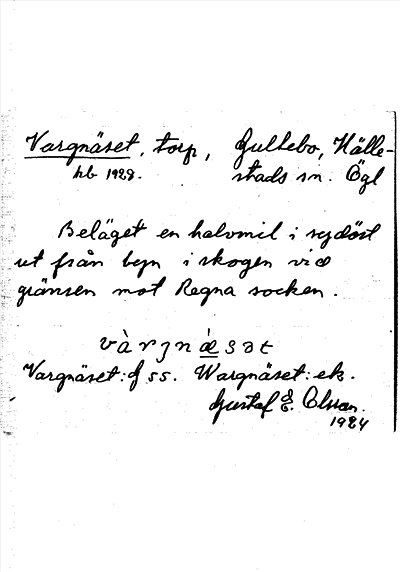 Vargnäset, torp, Gullebo, Hälle-
hb 1928. stads sn. Ögl
Beläget en halvmil i sydöst
ut från byn i skogen vid
gränsen mot Regna socken.
vàrgnǽsət
Vargnäset: f ss. Wargnäset: ek.
Gustaf E. Olsson.
1924